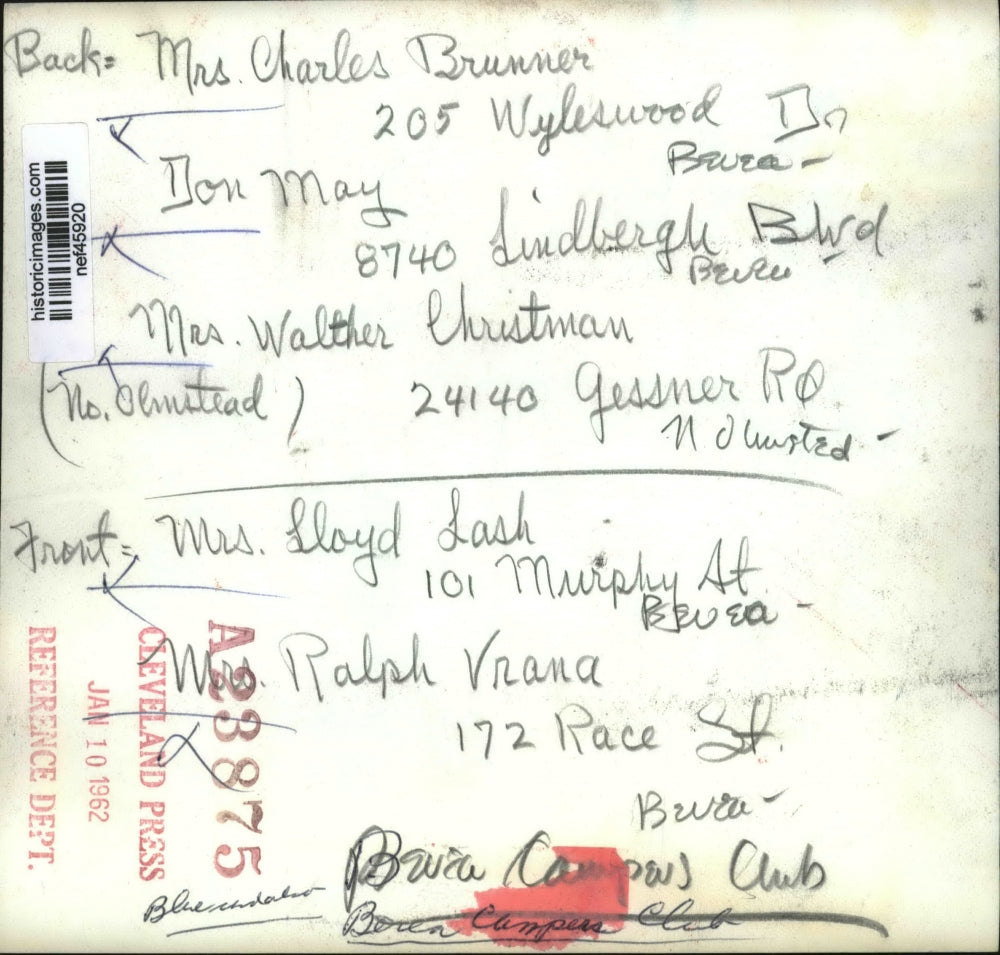 Back= Mrs. Charles Brunner
205 Wyleswood Dr
Berea -
Don May
8740 Lindbergh Blvd
Berea
Mrs. Walther Christman
(No. Olmstead)
24140 Gessner RD
N Olmsted -
Front= Mrs. Lloyd Lash
101 Murphy St
Berea -
Mrs. Ralph Vrana
172 Race St.
Berea -
Berea Campers Club
Berea Campers Club
historicimages.com
nef45920
A238875
CLEVELAND PRESS
JAN 10 1962
REFERENCE DEPT.